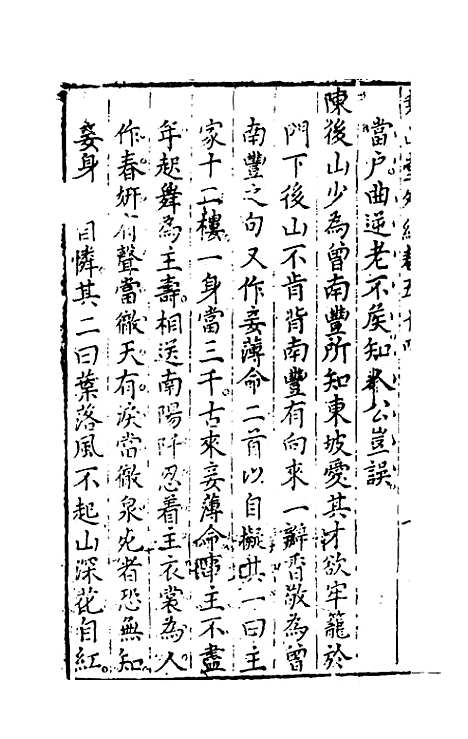 當户曲逆老不矦知人公豈誤
陳後山少為曾南豐所知東坡愛其才欲牢籠於
門下後山不肯背南豐有向來一瓣香敬為曾
南豐之句又作妾薄命二首以自擬其一曰主
家十二樓一身當三千古來妾薄命事主不盡
年起舞為主壽相送南陽阡忍着主衣裳為人
作春妍有聲當徹天有淚當徹泉死者恐無知
妾身 自憐其二曰葉落風不起山深花自紅